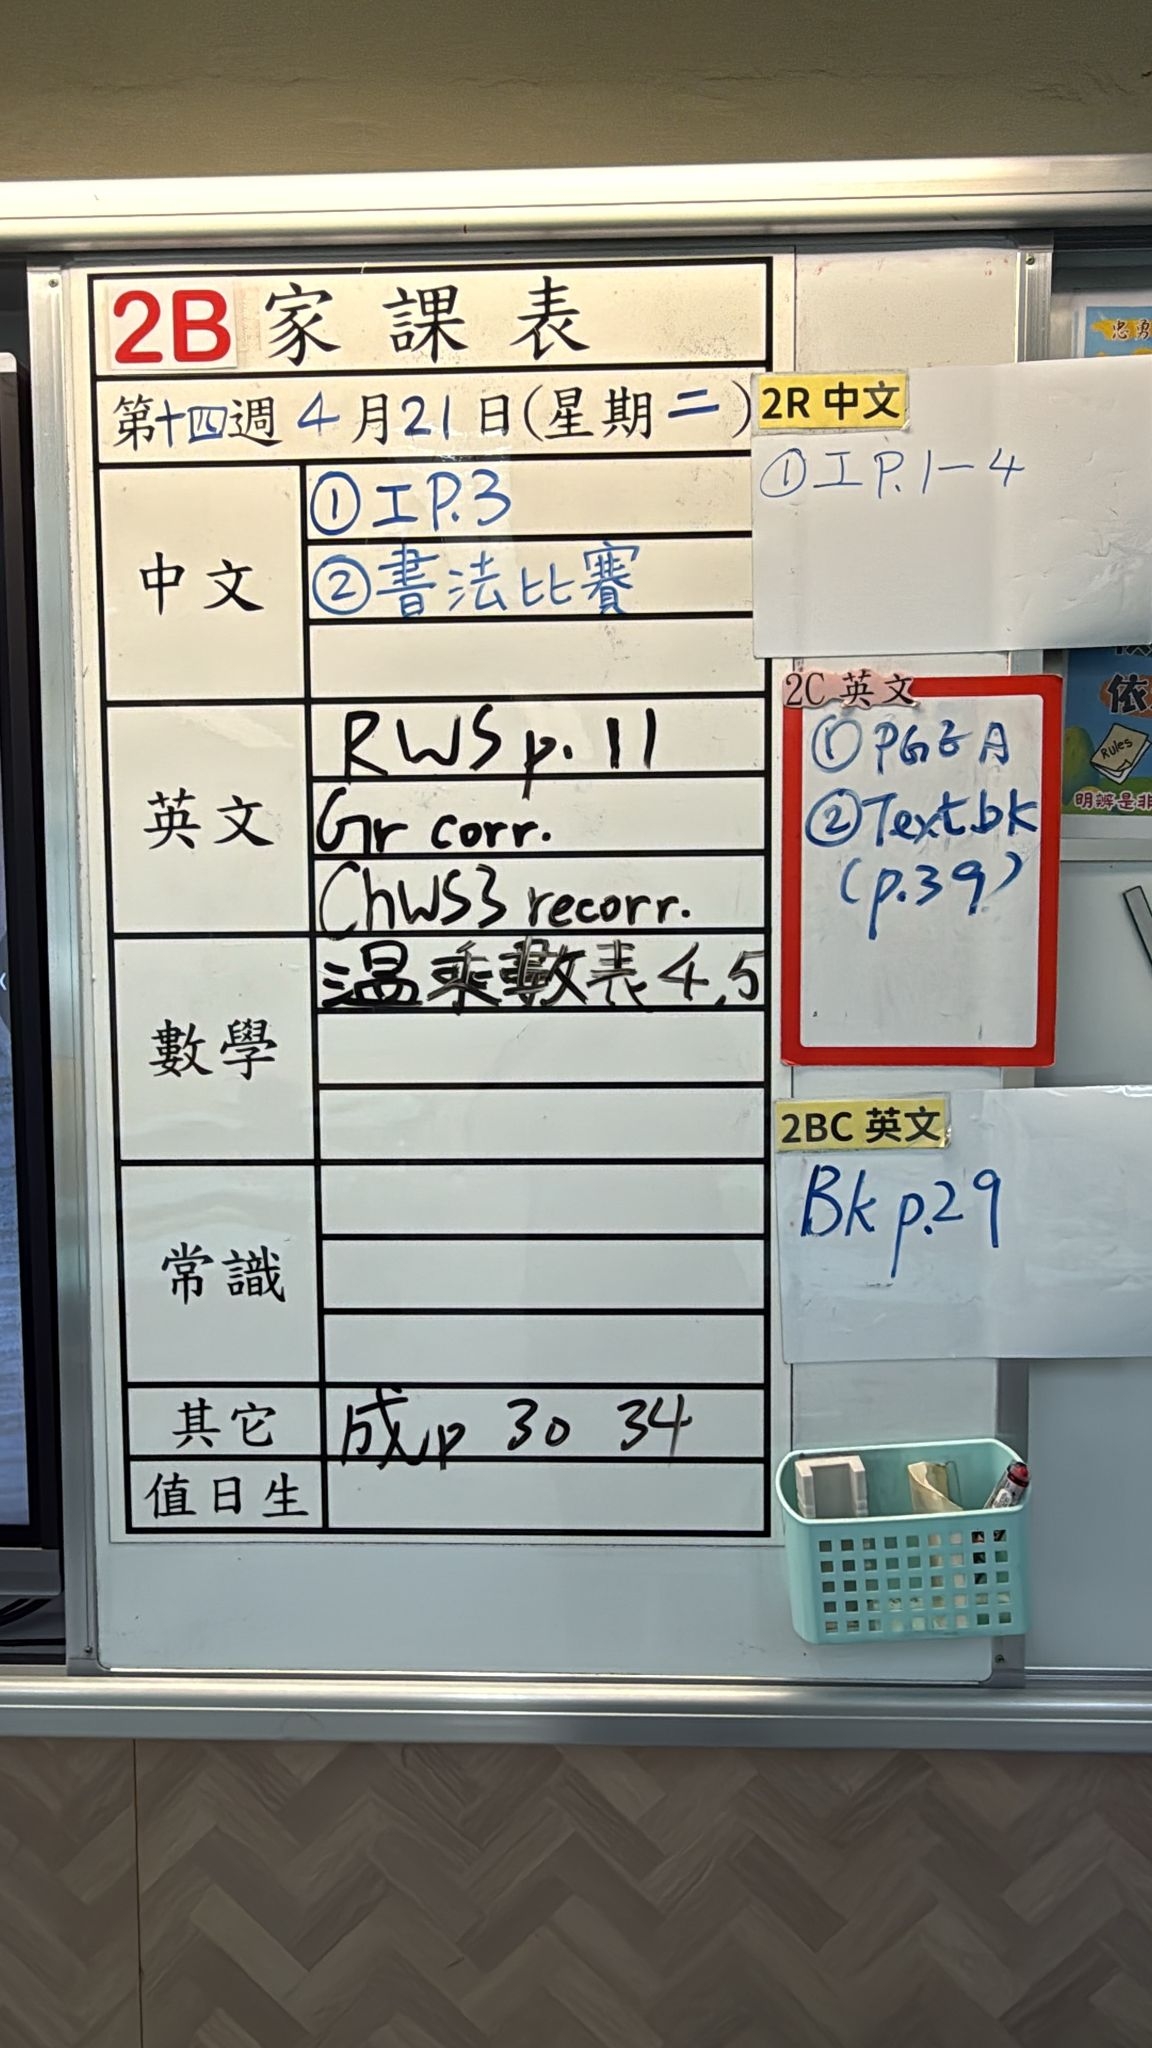 2B 家課表
第十四週 4月21日(星期二)
中文
①工P.3
②書法比賽
英文
RWS p. 11
Gr corr.
ChWS3 recorr.
數學
溫乘數表 4,5
常識
其它
成p 30 34
值日生
2R 中文
①工P.1-4
2C 英文
①PGE A
②Textbk
(p.39)
2BC 英文
Bk p.29
忠勇
依
Rules
明辨是非